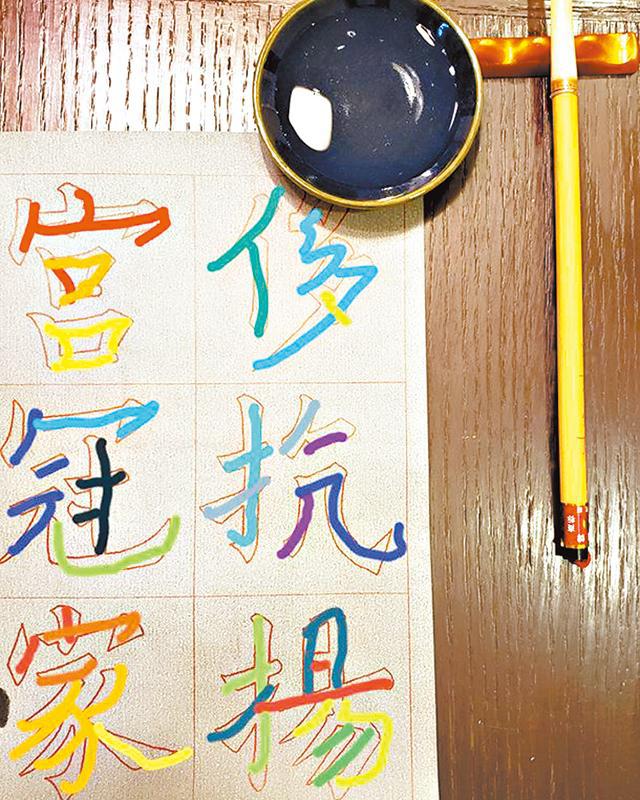 侈抗揚
宮冠家